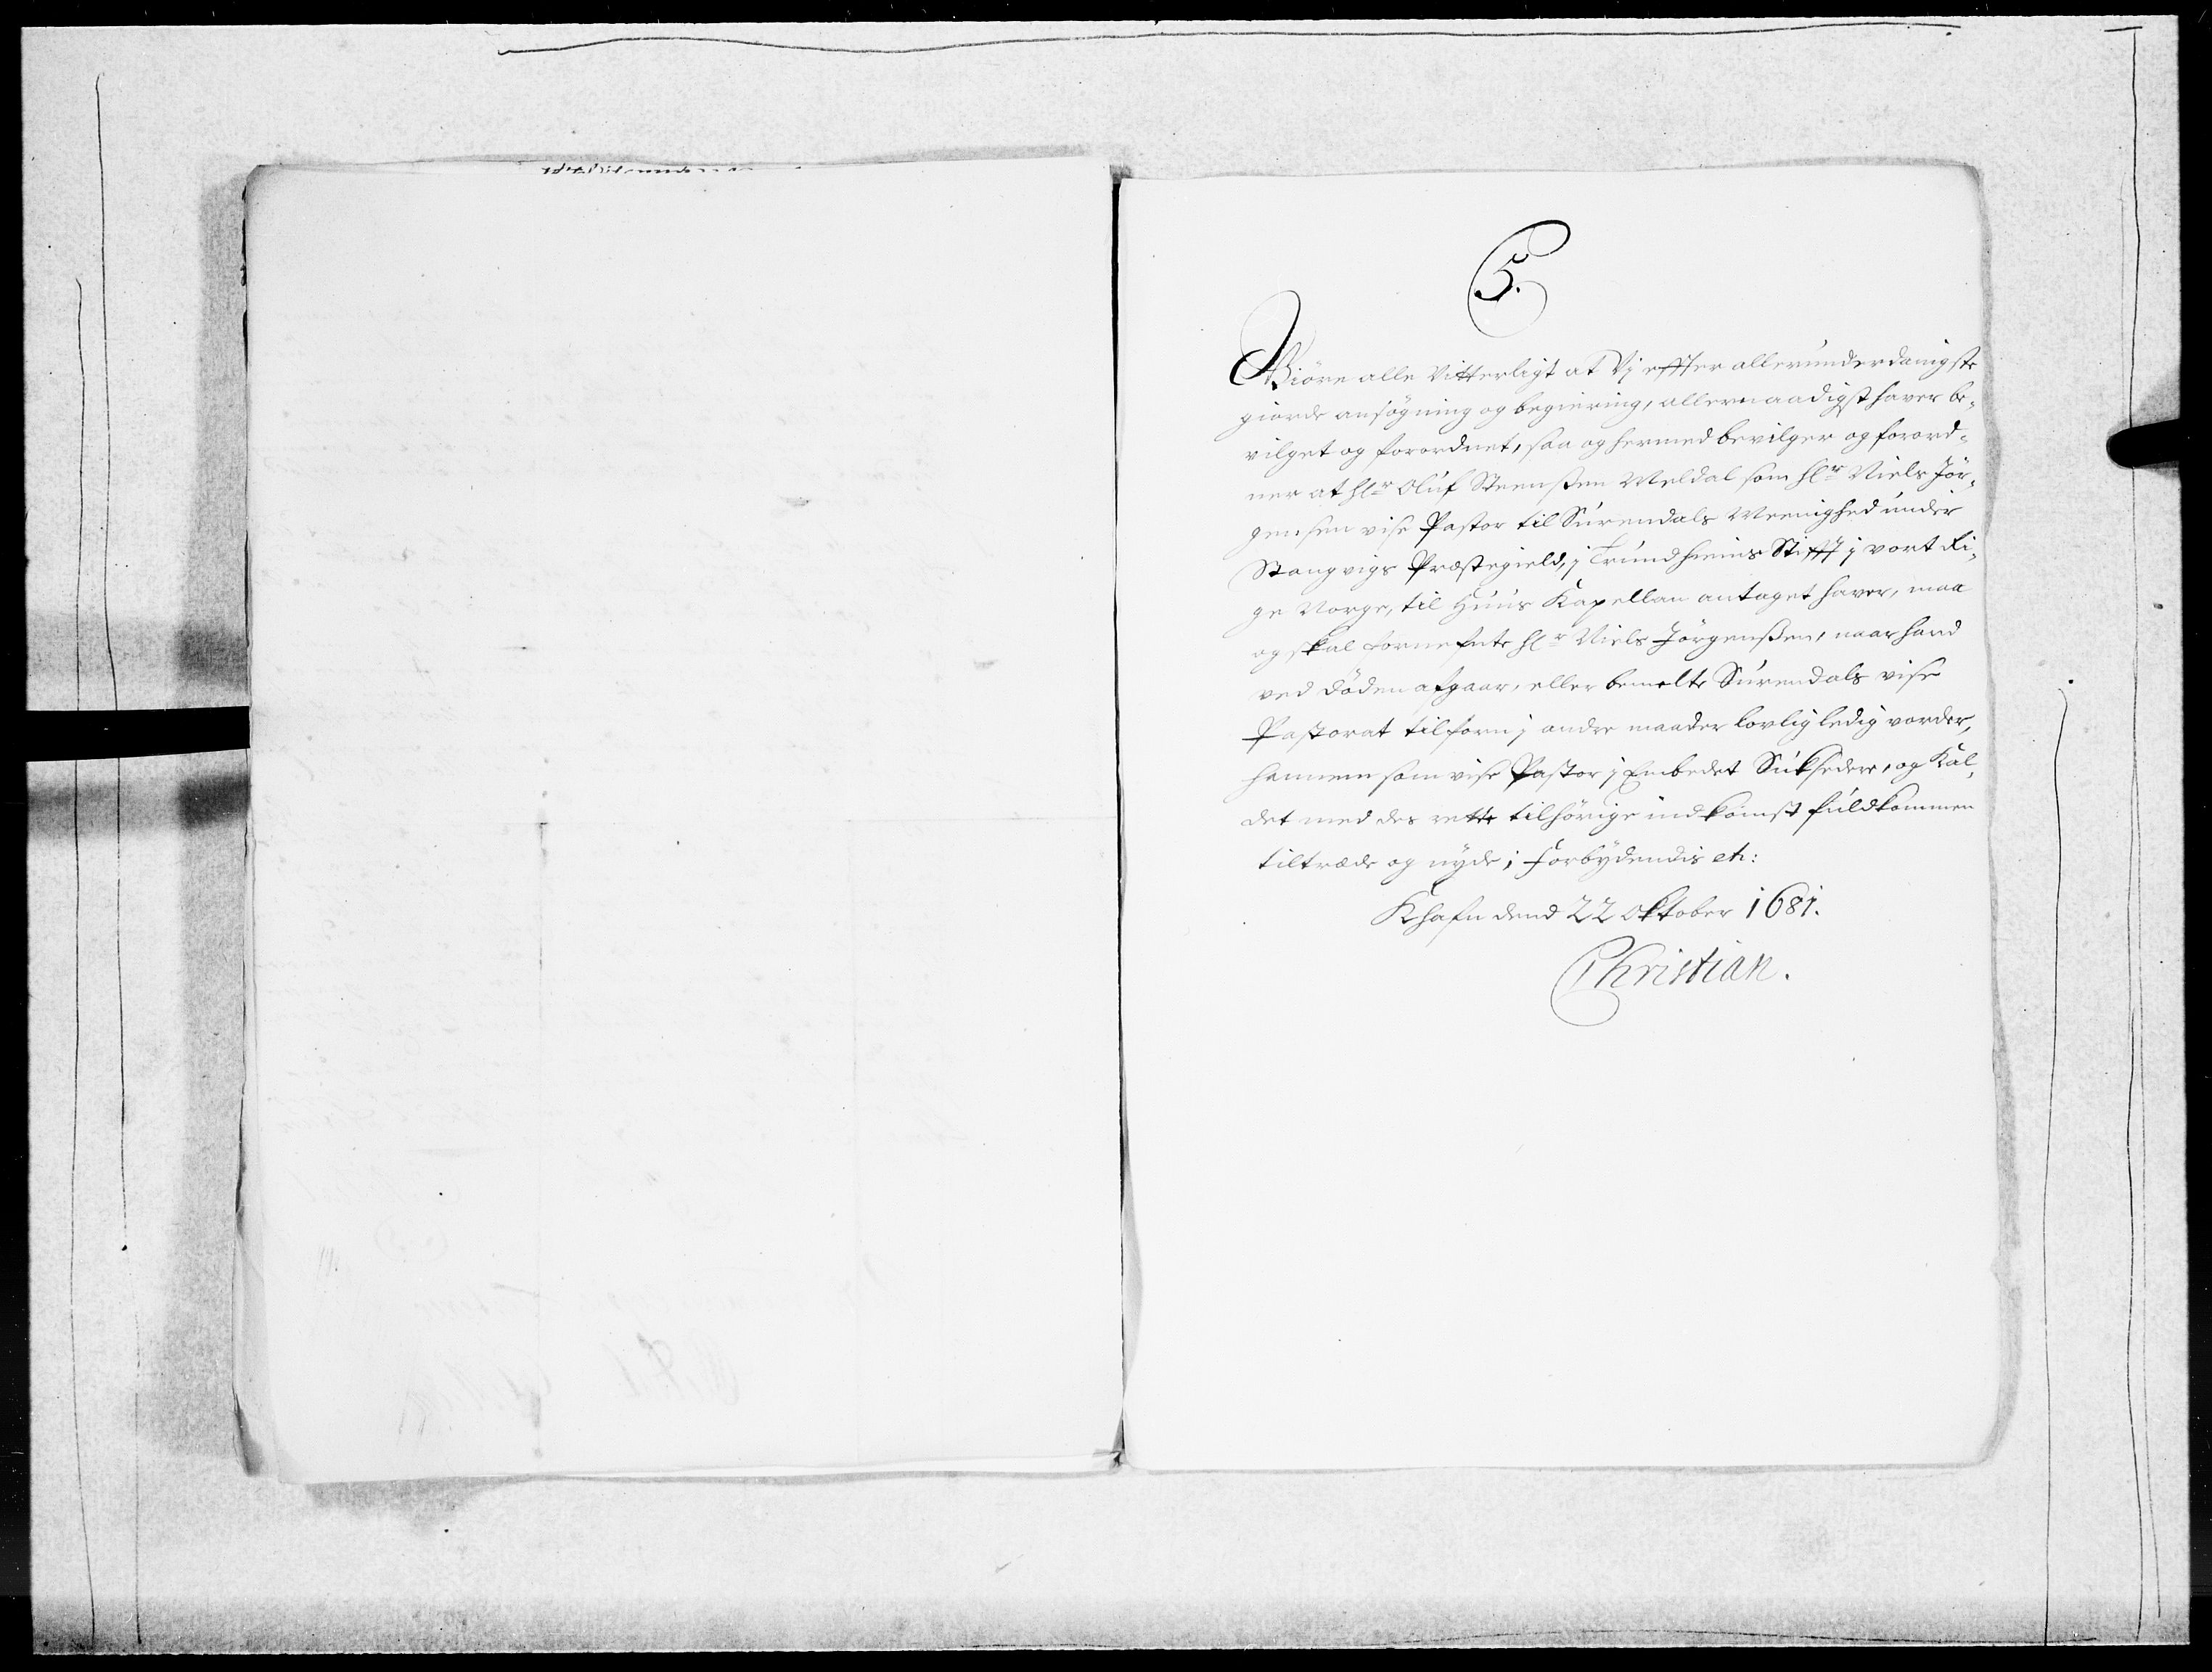 C5.
Giöre alle Vitterligt at Vj effter allerunderdanigste
giorde ansøgning og begiering, allernaadigst haver be-
vilget og forordnet, saa og hermed bevilger og forord-
ner at Hr Oluf Steenßen Meldal som Hr Niels Jör-
gensen vise Pastor til Surendals Meenighed under
Stangvigs Præstegield, j Trundhiems Stifft j vort Ri-
ge Norge, til Huus Kapellan antaget haver, maa
og skal fornefnte Hr Niels Jörgenßen, naar hand
ved döden afgaar, eller bemelte Surendals vise
Pastorat tilforn j andre maader lovlig ledig vorder,
hannem som vise Pastor j Embedet Suksedere, og Kal-
det med des rette tilhörige indkomst fuldkommen
tiltræde og nyde; Forbydendis etc:
Khafn dend 22 oktober 1681.
Christian.